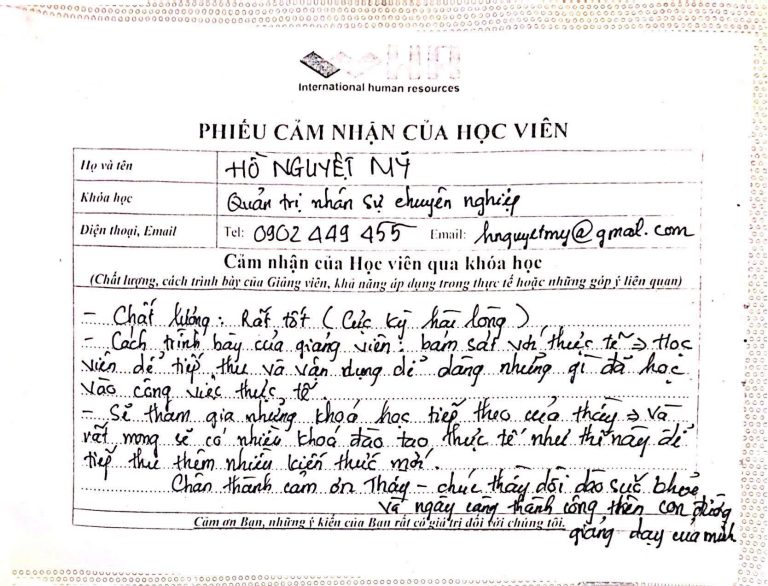 International human resources
PHIẾU CẢM NHẬN CỦA HỌC VIÊN
Họ và tên HỒ NGUYỆT MỸ
Khóa học Quản trị nhân sự chuyên nghiệp
Điện thoại, Email Tel: 0902 449 455 Email: hnguyetmy@gmail.com
Cảm nhận của Học viên qua khóa học
(Chất lượng, cách trình bày của Giảng viên, khả năng áp dụng trong thực tế hoặc những góp ý liên quan)
- Chất lượng: Rất tốt (Cực kỳ hài lòng)
- Cách trình bày của giảng viên: bám sát với thực tế => Học
viên dễ tiếp thu và vận dụng dễ dàng những gì đã học
vào công việc thực tế.
- Sẽ tham gia những khoá học tiếp theo của thầy => Và
rất mong sẽ có nhiều khoá đào tạo thực tế như thế này để
tiếp thu thêm nhiều kiến thức mới.
Chân thành cảm ơn Thầy - chúc thầy dồi dào sức khoẻ
và ngày càng thành công trên con đường
giảng dạy của mình
Cảm ơn Bạn, những ý kiến của Bạn rất có giá trị đối với chúng tôi.